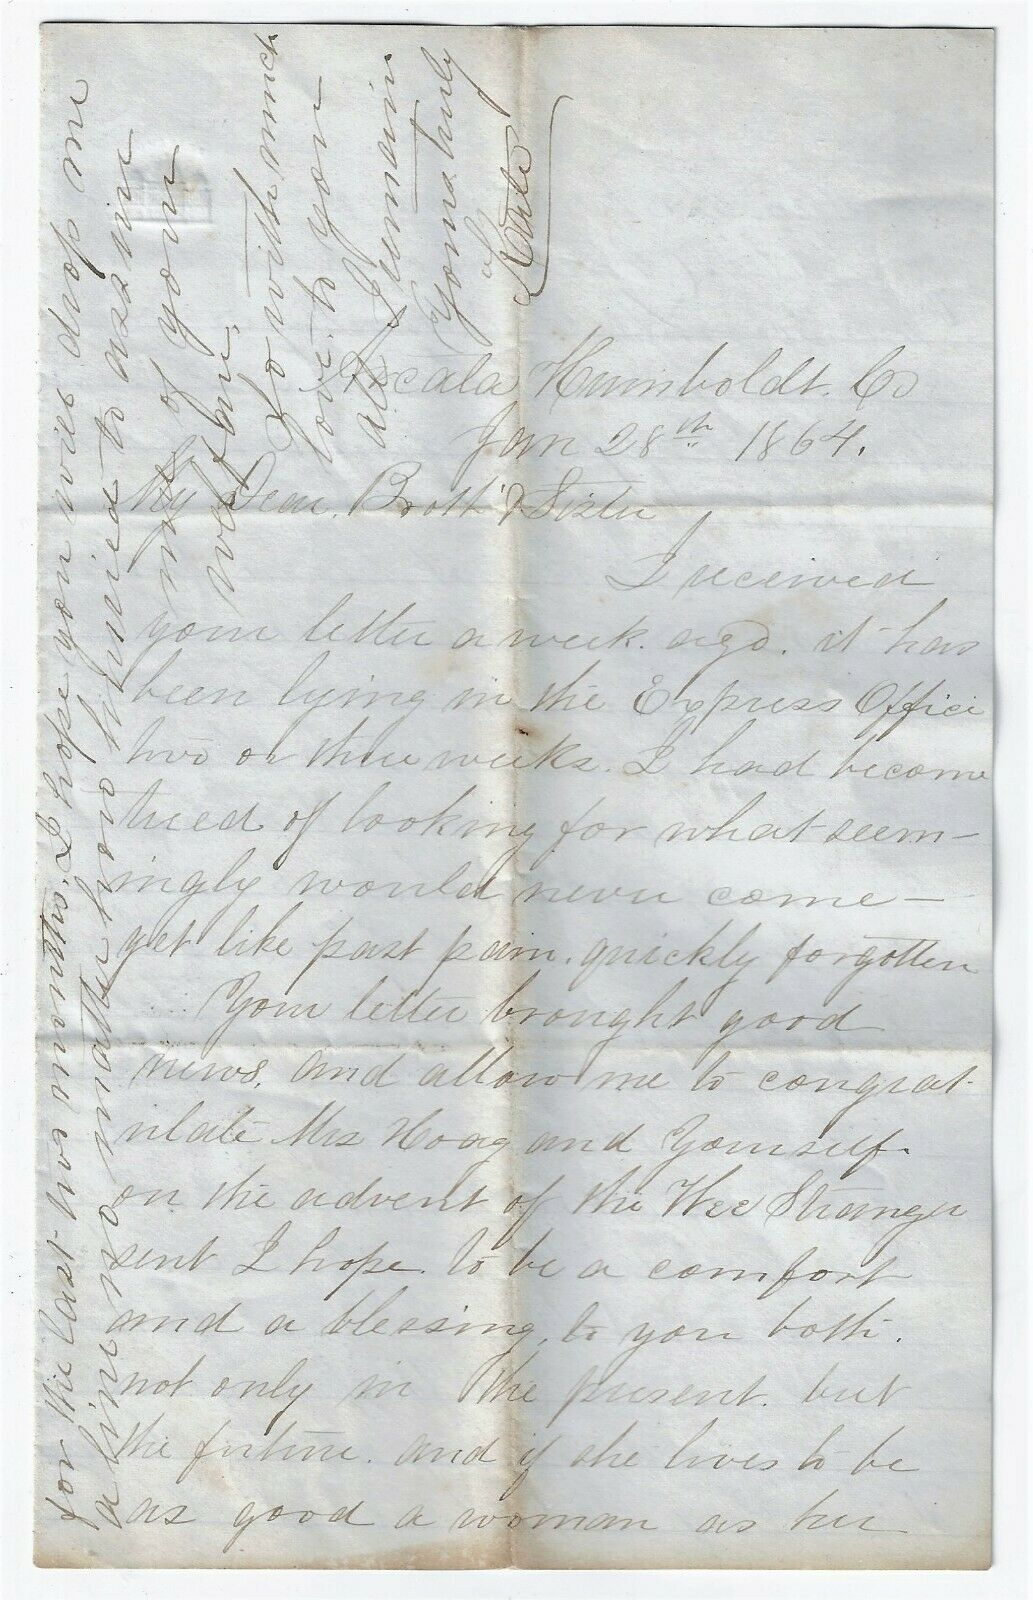 Arcata Humboldt. Co
Jan 28th 1864.
My Dear. Broth & Sister
I received
your letter a week. ago. it has
been lying in the Express Office
two or three weeks. I had become
tired of looking for what seem-
ingly would never come-
yet like past pain. quickly forgotten
Your letter brought good
news. and allow me to congrat-
ulate Mrs Hoag and Yourself.
on the advent of the Wee Stranger
sent I hope. to be a comfort
and a blessing. to you both.
not only in the present. but
the future. and if she lives to be
as good a woman as her
for the last two months. I hope you will drop me
a line no matter how hurried to assure
me of your
welfare.
So with much
love to you
all I remain
Yours truly
Kate